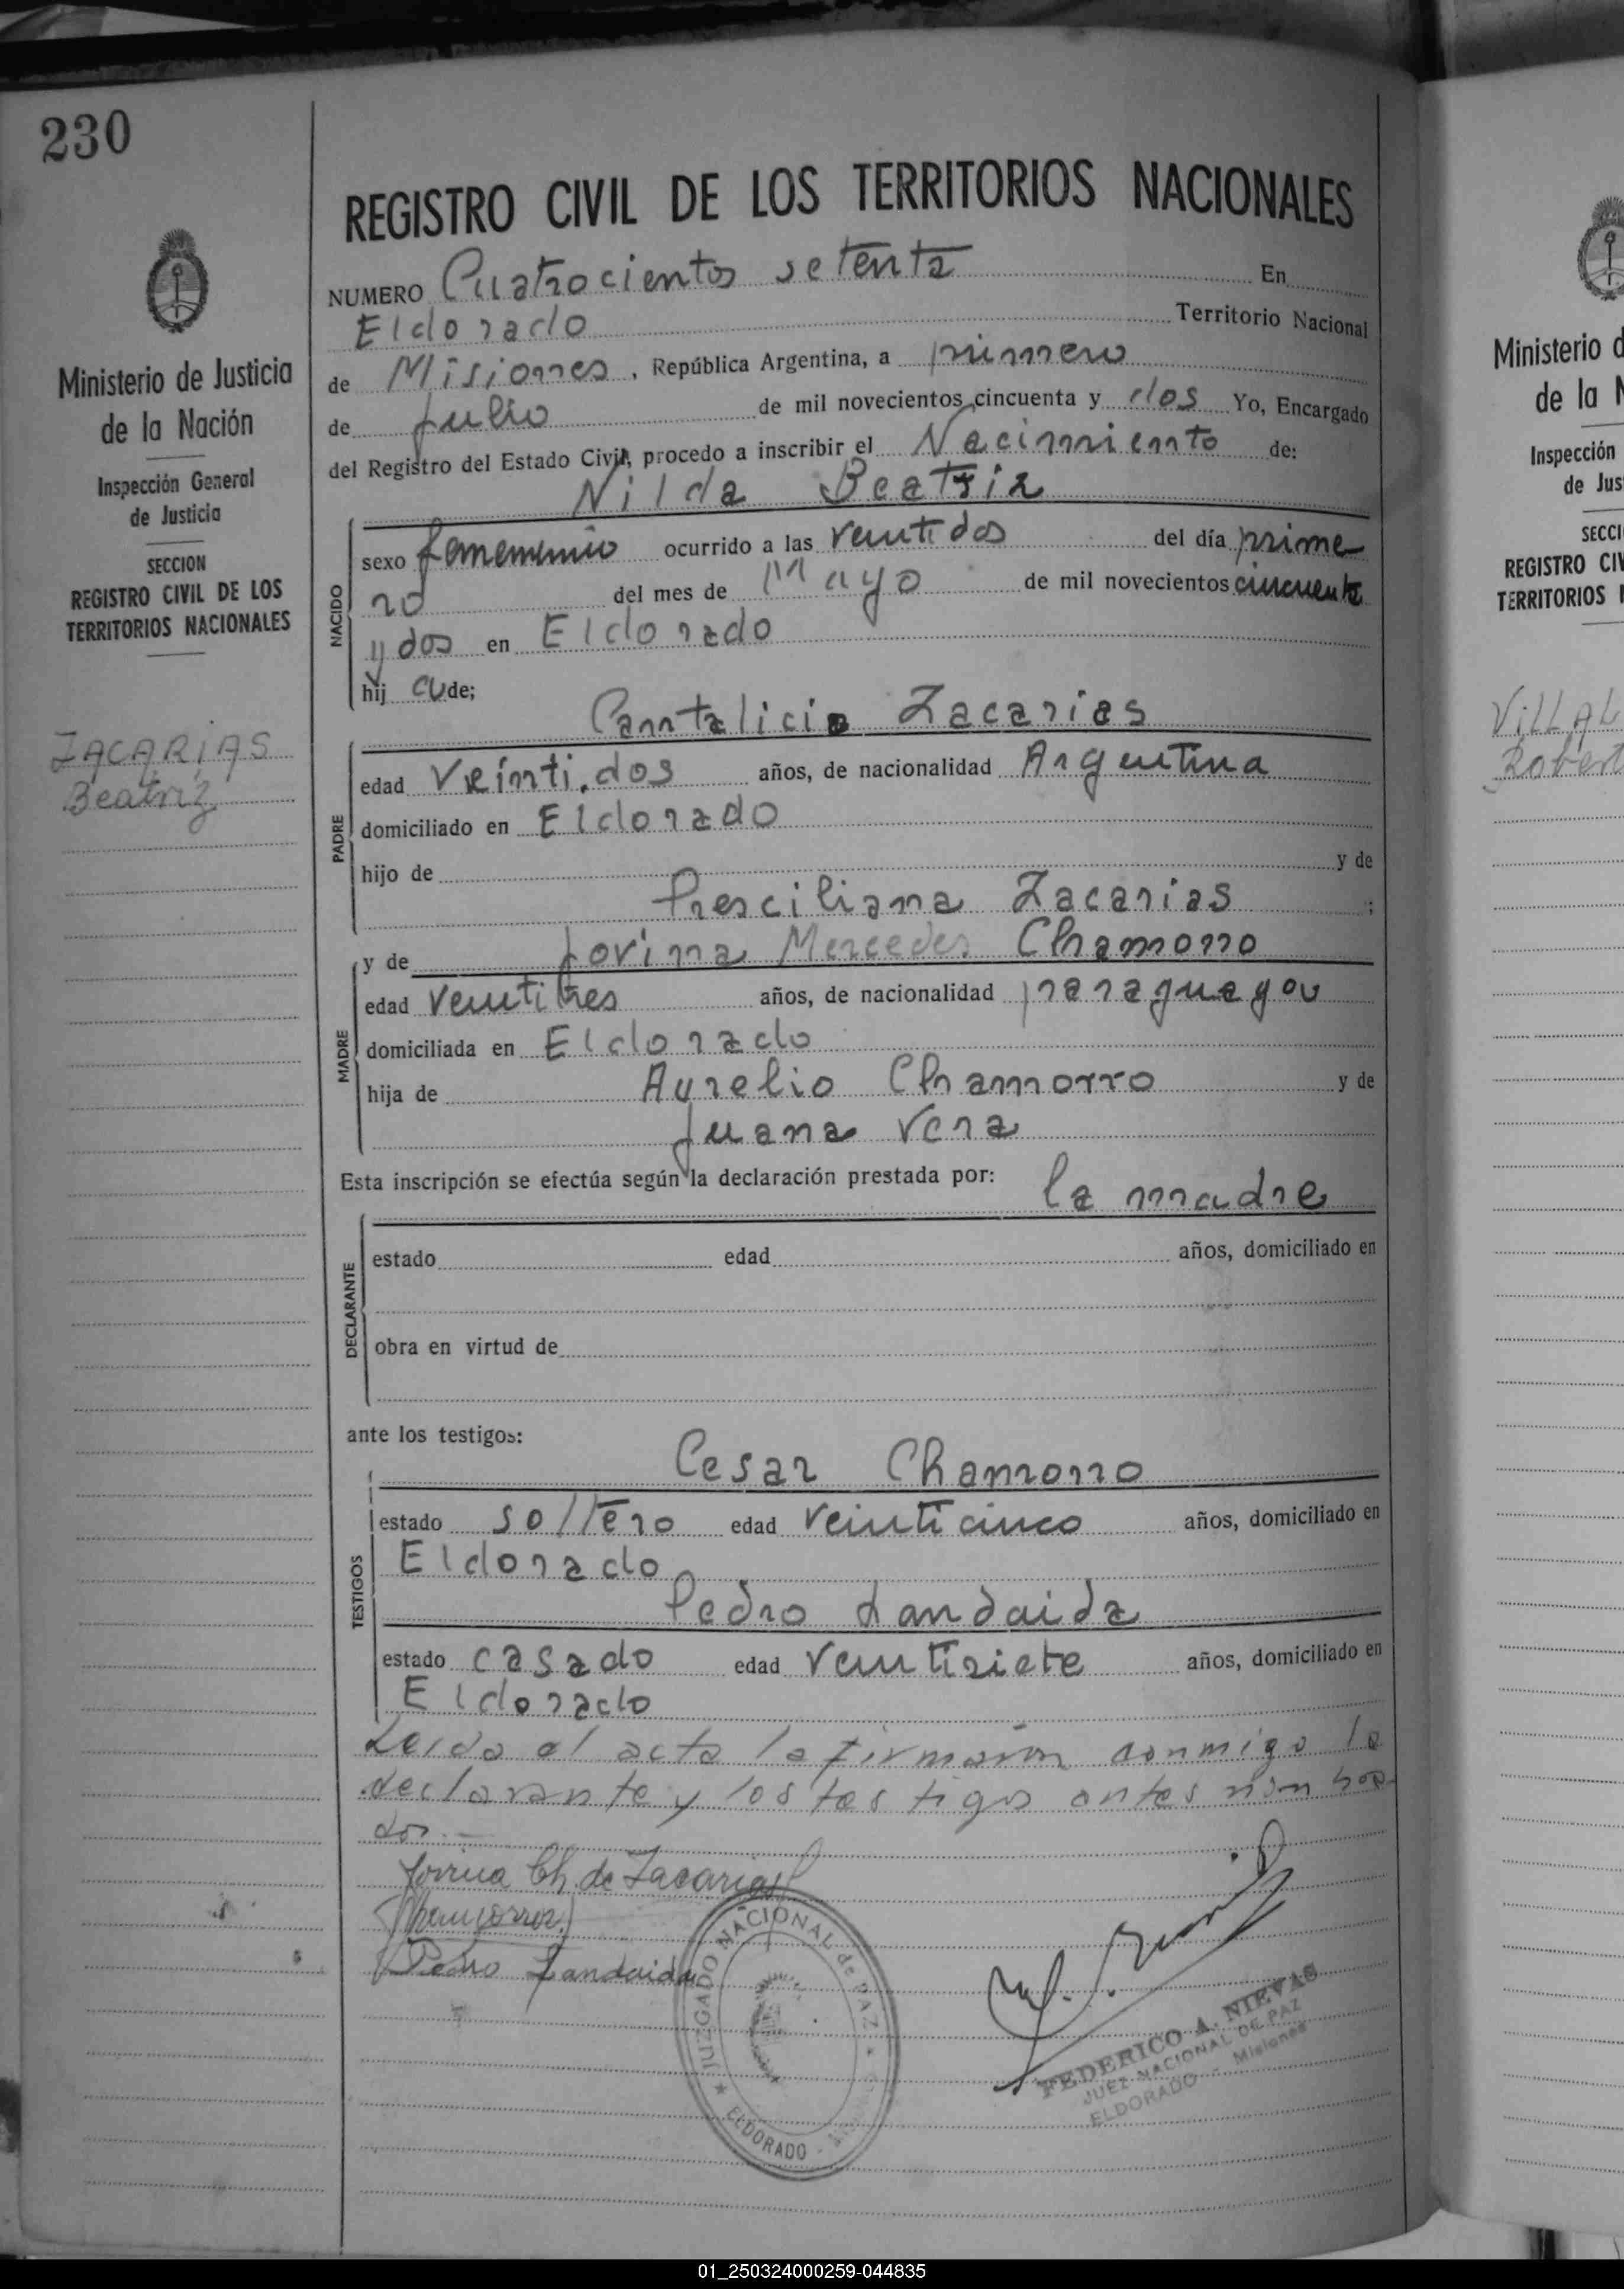 230
REGISTRO CIVIL DE LOS TERRITORIOS NACIONALES
NUMERO Cuatrocientos setenta En
Eldorado Territorio Nacional
de Misiones, República Argentina, a primero
de Julio de mil novecientos cincuenta y dos Yo, Encargado
del Registro del Estado Civil, procedo a inscribir el Nacimiento de:
Nilda Beatriz
NACIDO
sexo femenino ocurrido a las veintidos del día prime
ro del mes de Mayo de mil novecientos cincuenta
y dos en Eldorado
hij a de;
Cantalicio Zacarias
PADRE
edad veinti.dos años, de nacionalidad Argentina
domiciliado en Eldorado
hijo de y de
Presciliana Zacarias ;
y de Jovina Mercedes Chamorro
MADRE
edad veintitres años, de nacionalidad paraguaya
domiciliada en Eldorado
hija de Aurelio Chamorro y de
Juana Vera
Esta inscripción se efectúa según la declaración prestada por: la madre
DECLARANTE
estado edad años, domiciliado en
obra en virtud de
ante los testigos:
Cesar Chamorro
TESTIGOS
estado soltero edad veinticinco años, domiciliado en
Eldorado
Pedro Landaida
estado casado edad veintisiete años, domiciliado en
Eldorado
Leida el acta la firmaron conmigo la
declarante y los testigos antes nombra-
dos.—
Jovina Ch. de Zacarias
Pedro Landaida
JUZGADO NACIONAL de PAZ
ELDORADO
FEDERICO A. NIEVAS
JUEZ NACIONAL DE PAZ
ELDORADO - Misiones
Ministerio de Justicia
de la Nación
Inspección General
de Justicia
SECCION
REGISTRO CIVIL DE LOS
TERRITORIOS NACIONALES
ZACARIAS
Beatriz
Ministerio d
de la N
Inspección
de Jus
SECCI
REGISTRO CIV
TERRITORIOS
VILLAL
Robert
01_250324000259-044835